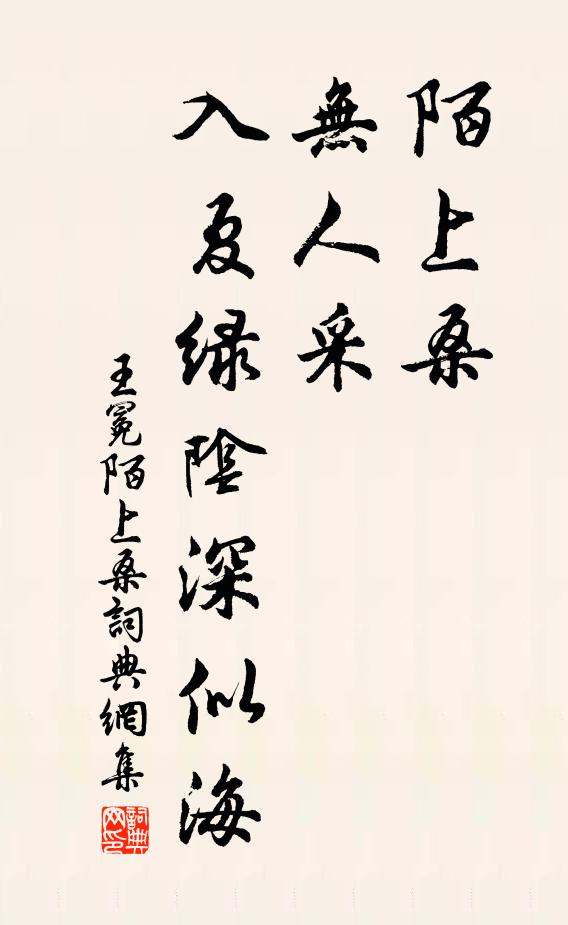 陌上桑
無人采
入夏綠陰深似海
王冕陌上桑詞典網集
詞典
网印